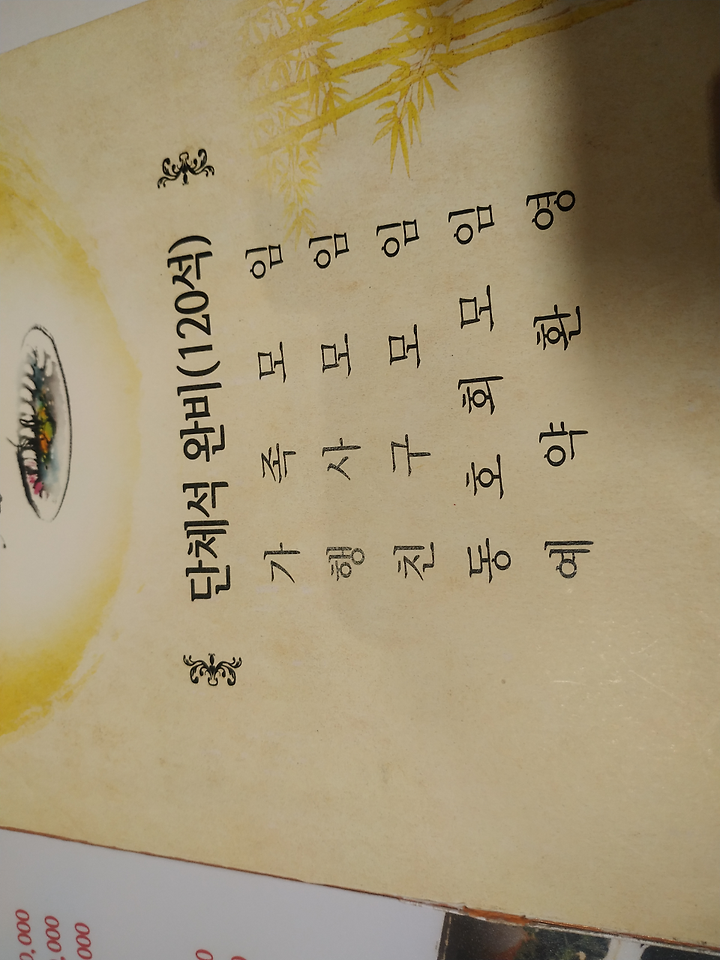 단체석 완비(120석)
가 족 모 임
행 사 모 임
친 구 모 임
동 호 회 모 임
예 약 환 영
0,000
,000
000
0